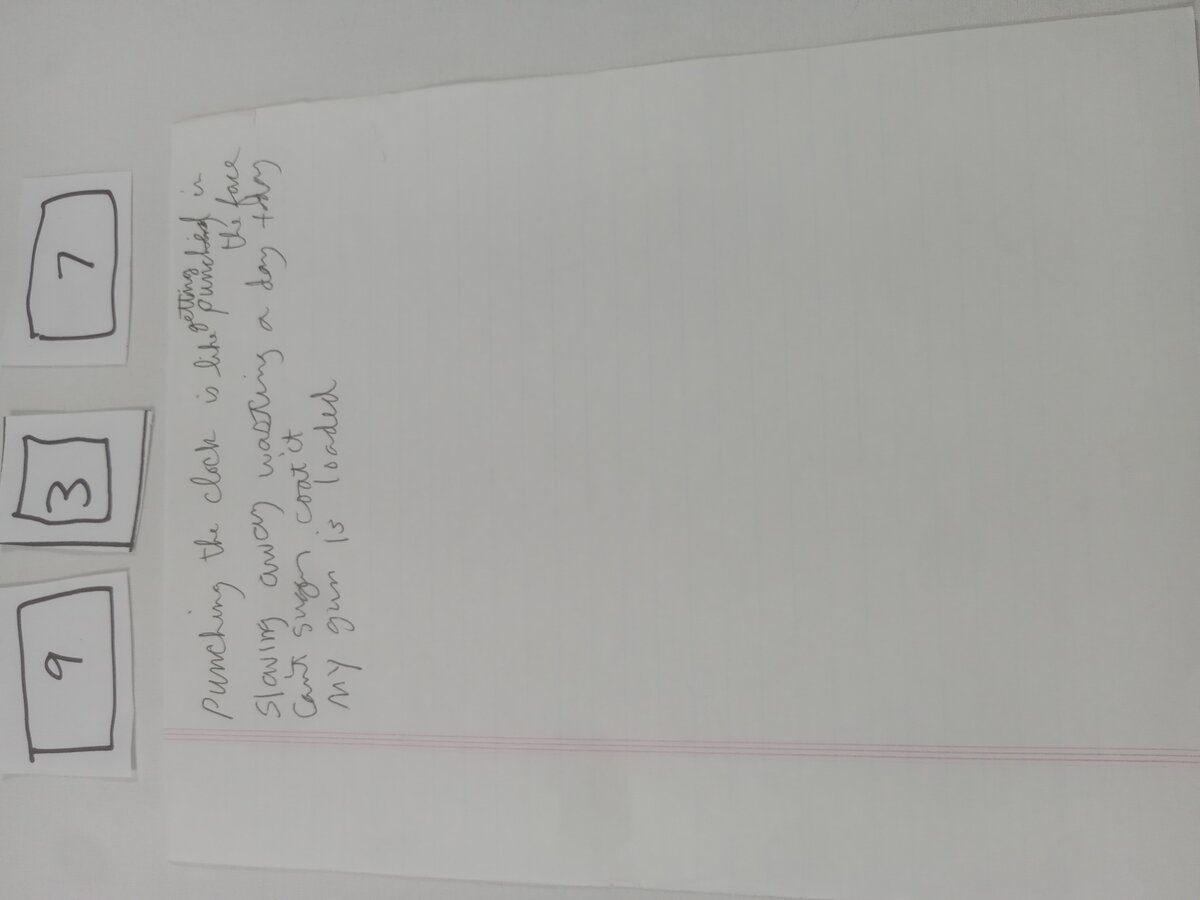 9 3 7
Punching the clock is like getting punched in
the face
Slaving away wasting a day today
Can't sugar coat it
My gun is loaded